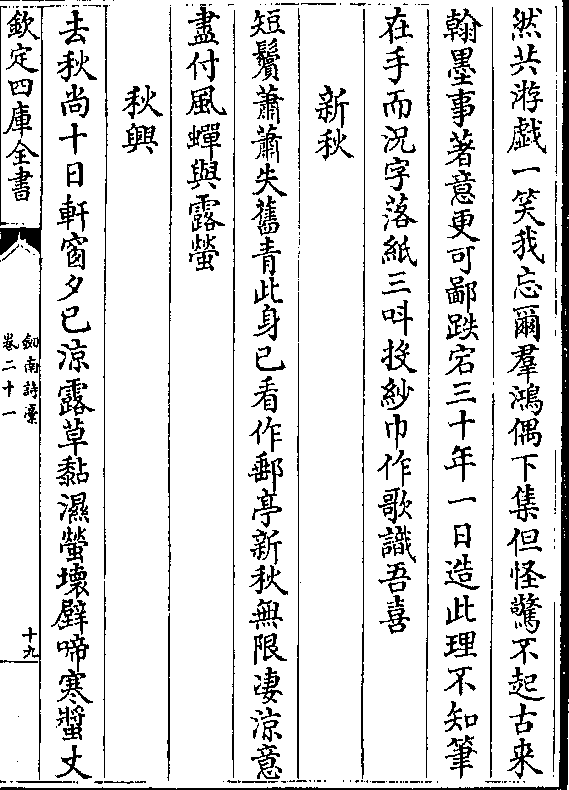 然共游戯一笑我忘爾羣鴻偶下集但怪驚不起古來
翰墨事著意更可鄙跌宕三十年一日造此理不知筆
在手而況字落紙三呌投紗巾作歌識吾喜
新秋
短鬢蕭蕭失舊青此身已看作郵亭新秋無限凄涼意
盡付風蟬與露螢
秋興
去秋尚十日軒窗夕已涼露草黏濕螢壊壁啼寒螿丈
欽定四庫全書
劒南詩藁
卷二十一
十九